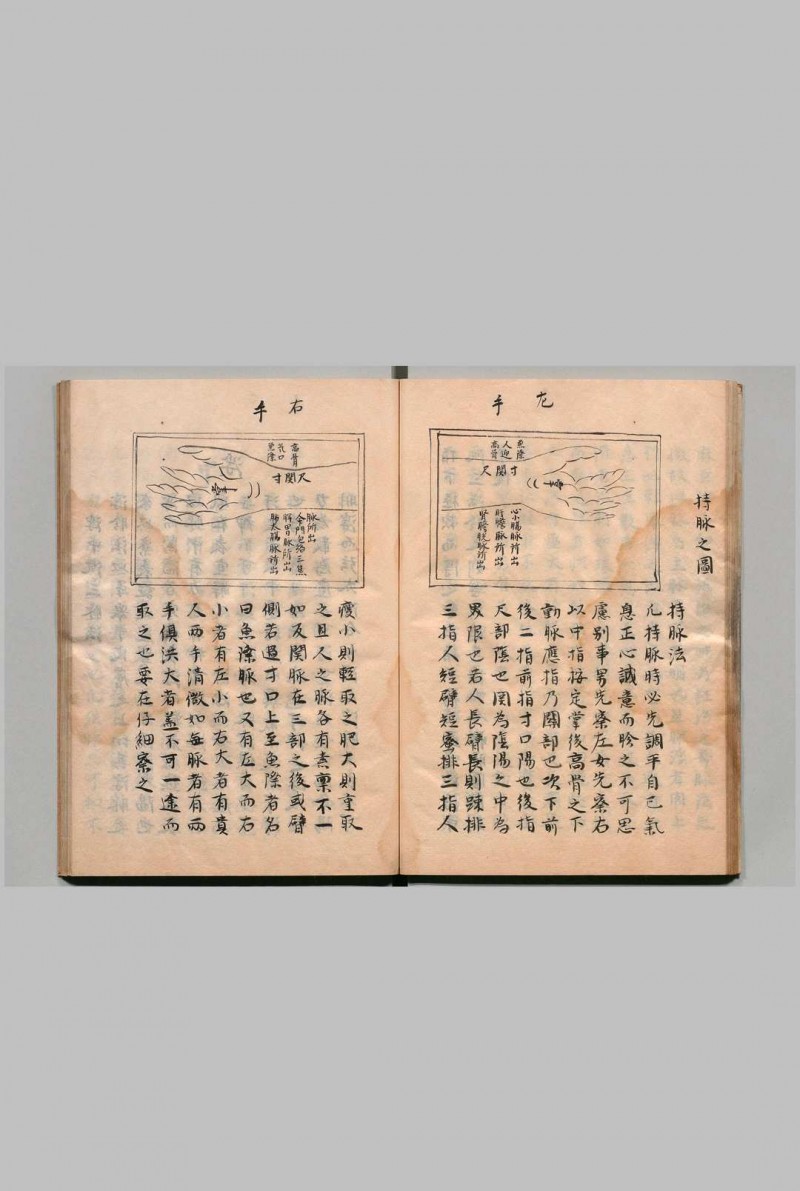 持脉之圖
左手
魚際
人迎
高骨
寸關尺
心小腸脉所出
肝膽脉所出
腎膀胱脉所出
持脉法
凡持脉時必先調平自己氣
息正心誠意而診之不可思
慮别事男先察左女先察右
以中指按定掌後高骨之下
動脉應指乃關部也次下前
後二指前指寸口陽也後指
尺部陰也関為陰陽之中為
界限也若人長臂長則踈排
三指人短臂短宻排三指人
右手
高骨
氣口
魚際
尺關寸
脉所出
命門包絡三焦
脾胃脉所出
肺大腸脉所出
瘦小則輕取之肥大則重取
之且人之脉各有素禀不一
如反関脉在三部之後或臂
側若過寸口上至魚際者名
曰魚際脉也又有左大而右
小者有左小而右大者有貴
人两手清微如無脉者有两
手俱洪大者盖不可一途而
取之也要在仔細察之